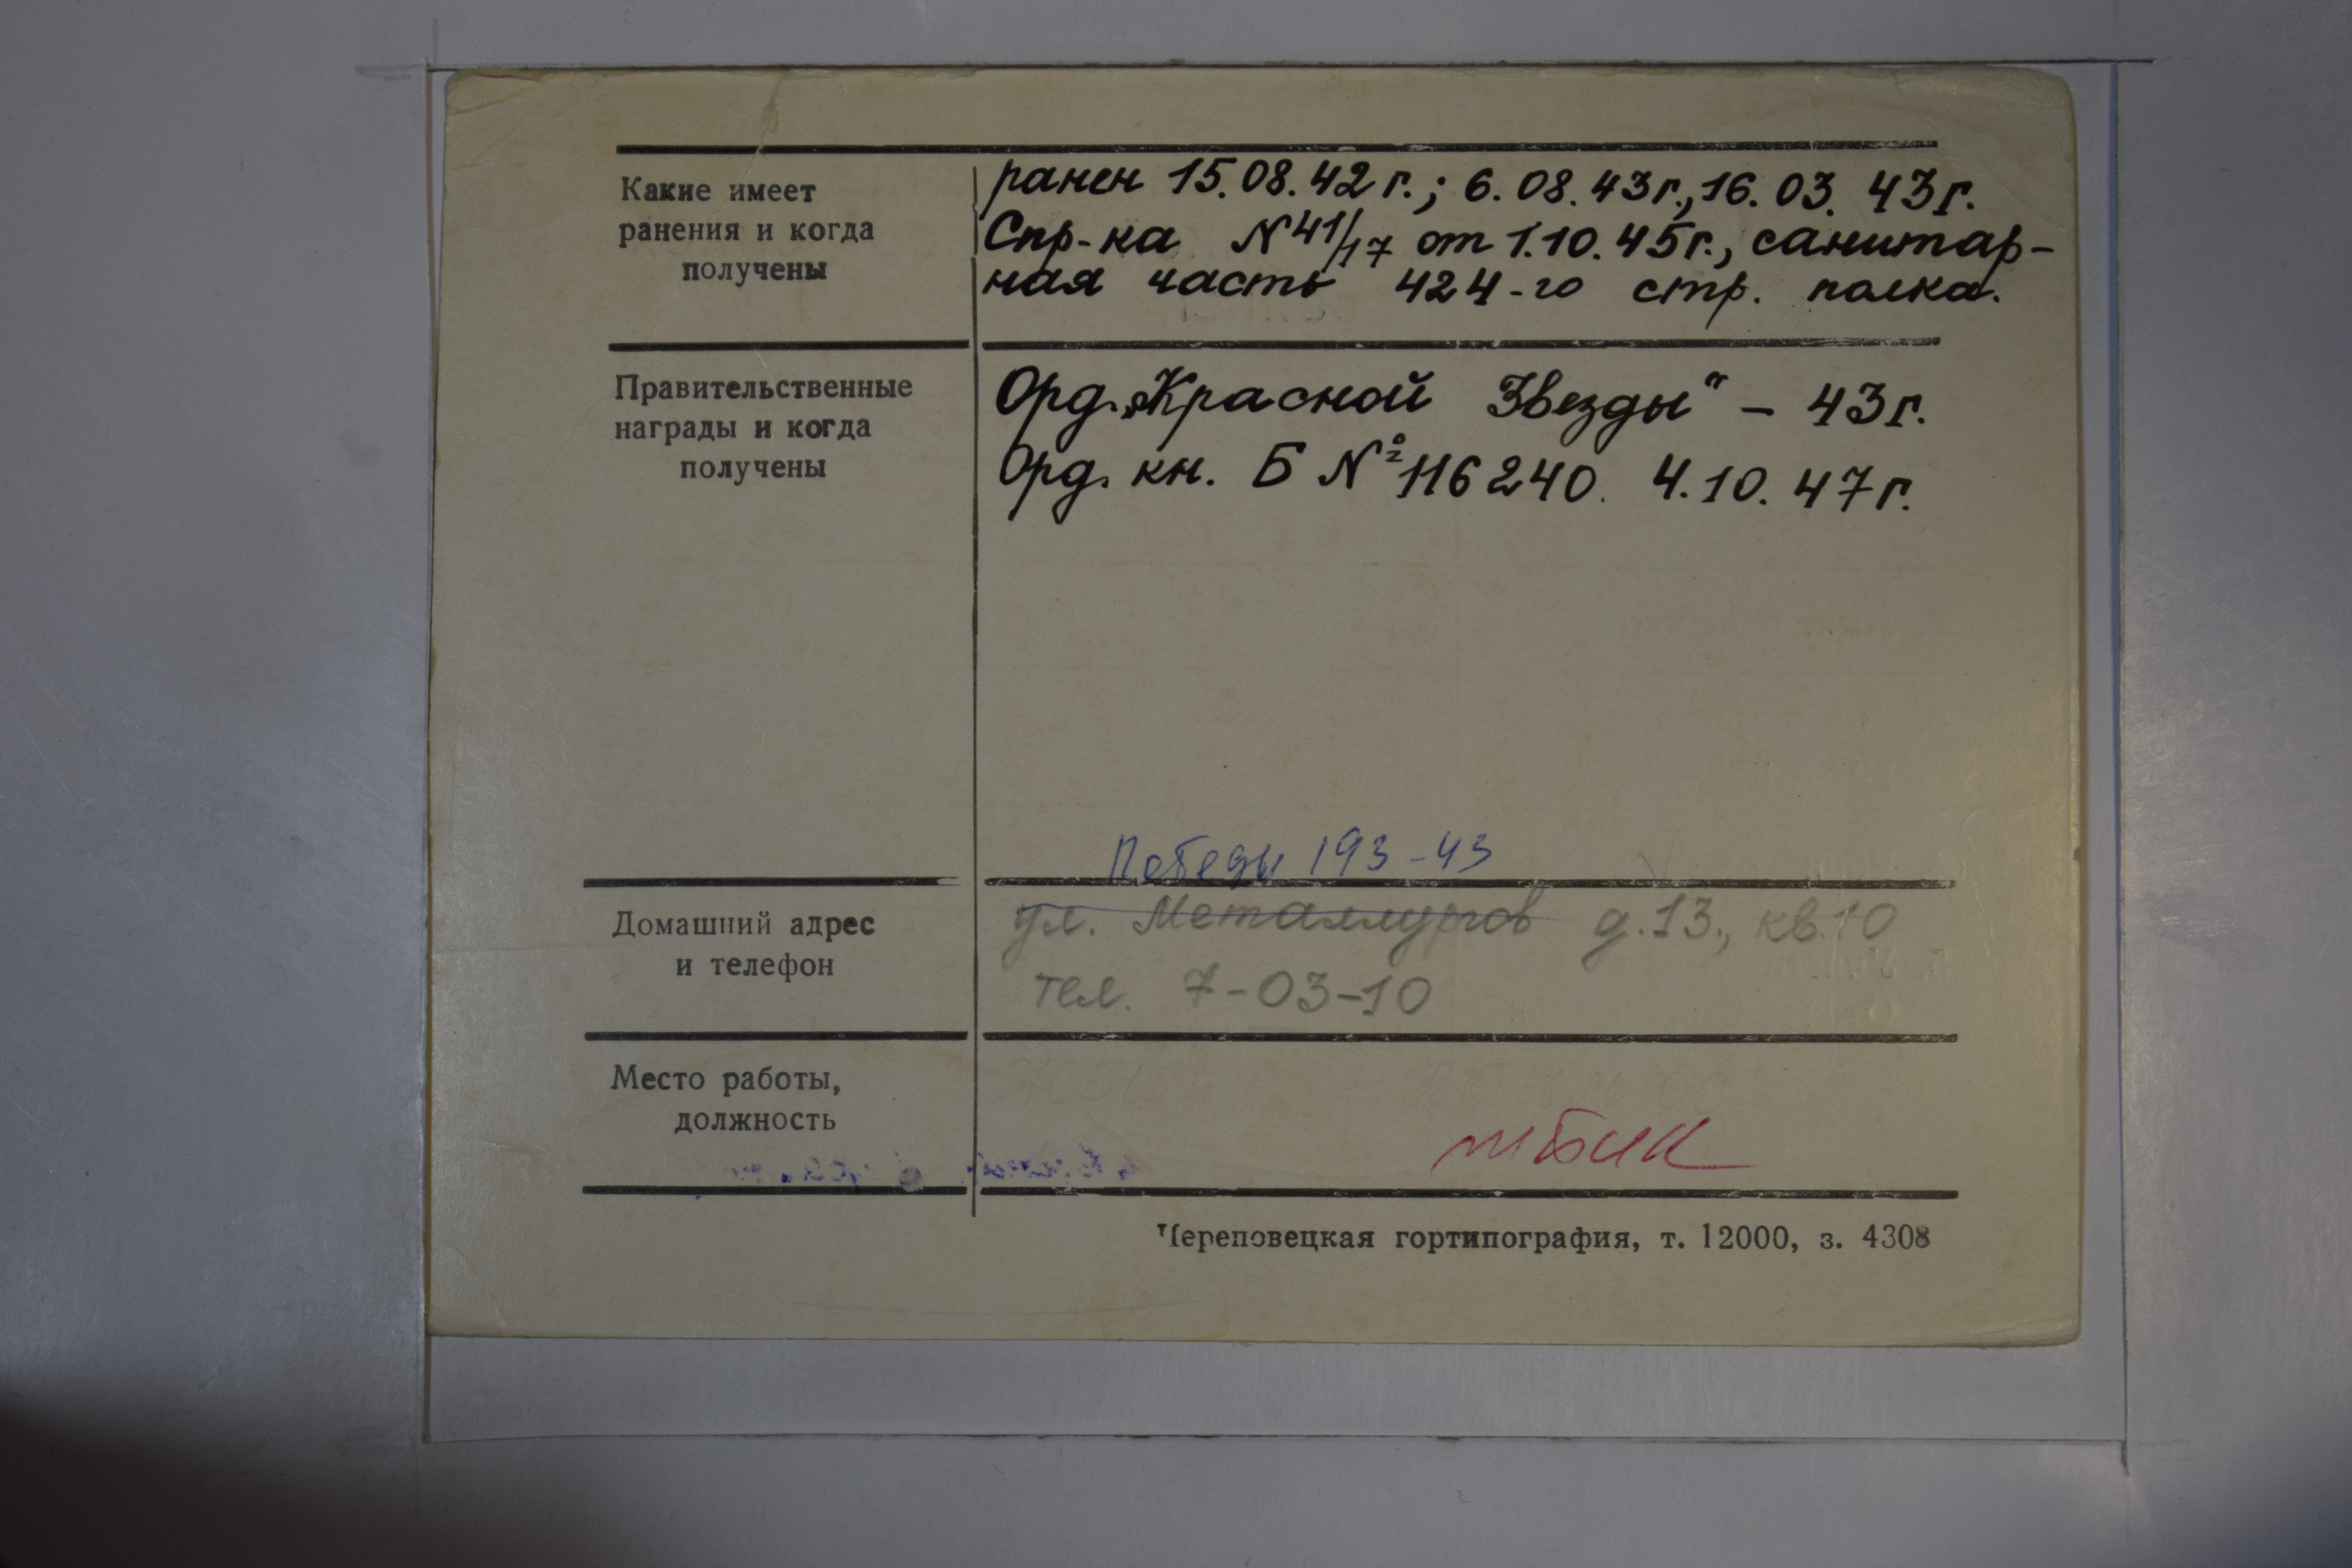 Какие имеет
ранения и когда
получены
ранен 15.08.42 г.; 6.08.43г., 16.03.43г.
Спр-ка N 41/17 от 1.10.45г., санитар-
ная часть 424-го стр. полка.
Правительственные
награды и когда
получены
Орд. „Красной Звезды" – 43г.
Орд. кн. Б № 116240. 4.10.47г.
Победы 193-43
Домашний адрес
и телефон
ул. Металлургов д.13., кв.10
тел. 7-03-10
Место работы,
должность
Череповецкая гортипография, т. 12000, з. 4308